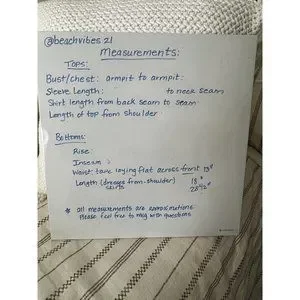 @beachvibes 21
Measurements:
Tops:
Bust/chest: armpit to armpit:
Sleeve Length: to neck seam
Shirt length from back seam to seam
Length of top from shoulder
Bottoms:
Rise:
Inseam:
Waist: tape laying flat across front 13"
Length (dresses from shoulder) 18"
skirts 28½"
* all measurements are approximations
Please feel free to msg with questions